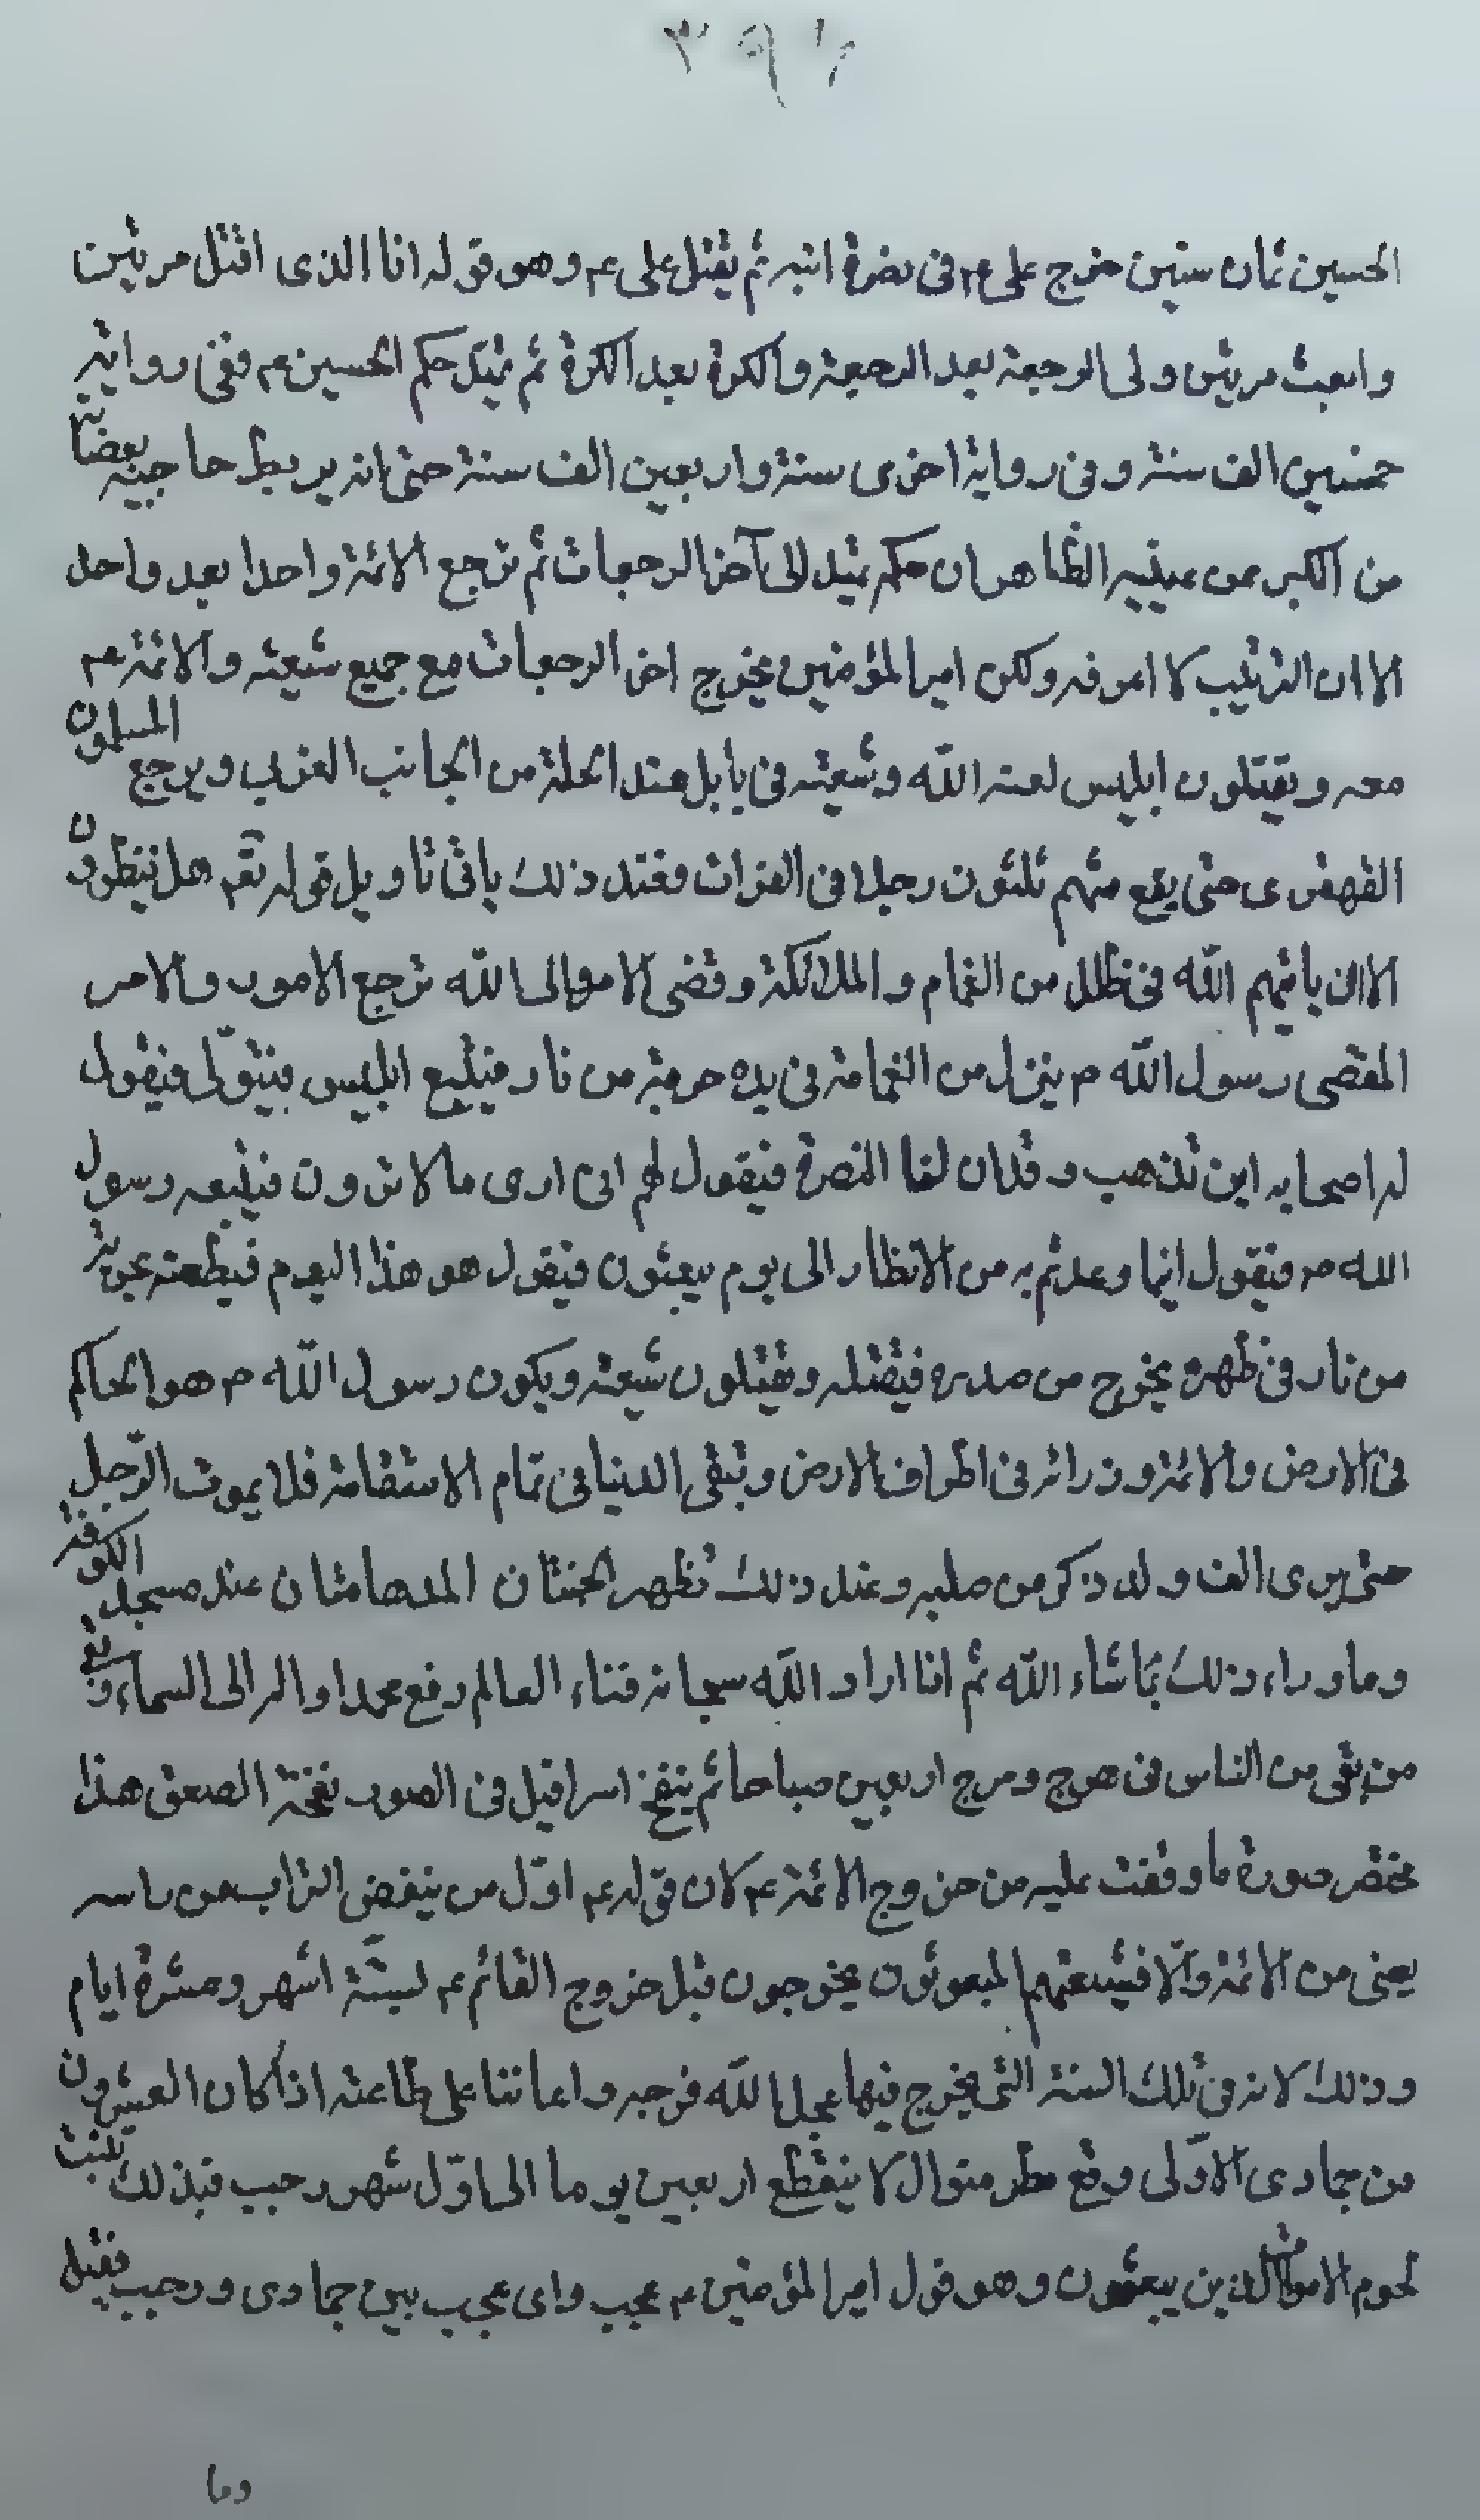 الحسين ثمان سنين خرج علي ع م في نصرة ابنه ثم يقتل علي ع م وهو قوله انا الذي اقتل مرتين
وابعث مرتين ولي الرجعة بعد الرجعة والكرة بعد الكرة ثم يمتد حكم الحسين ع م ففي رواية
خمسين الف سنة وفي رواية اخرى سنة واربعين الف سنة حتى انه يربط حاجبيه بعصابة
من الكبر عن عينيه الظاهر ان حكم يمتد الى آخر الرجعات ثم ترجع الائمة واحدا بعد واحد
الا ان الترتيب لا اعرفه ولكن امير المؤمنين يخرج اخر الرجعات مع جميع شيعته والائمة ع م
معه ويقتلون ابليس لعنه الله وشيعته في بابل عند الحلة من الجانب الغربي ويرجع المسلمون
القهقرى حتى يقع منهم ثلثون رجلا في الفرات فعند ذلك ياتي تاويل قوله تعم هل ينظرون
الا ان ياتيهم الله في ظلل من الغمام والملائكة وقضي الامر والى الله ترجع الامور والامر
المقضى رسول الله م ينزل من الغمامة في يده حربة من نار فيتبع ابليس فيتولى فيقول
له اصحابه اين تذهب وقد ان لنا النصرة فيقول لهم اني ارى ما لا ترون فيتبعه رسول
الله م فيقول انما وعدتم به من الانظار الى يوم يبعثون فيقول هو هذا اليوم فيطعنه بحربة
من نار في ظهره يخرج من صدره فيقتله ويقتلون شيعته ويكون رسول الله م هو الحاكم
في الارض والائمة وزرائه في اطراف الارض وتبقى الدنيا في تمام الاستقامة فلا يموت الرجل
حتى يرى الف ولد ذكر من صلبه وعند ذلك تظهر الجنتان المدهامتان عند مسجد الكوفة
وما وراء ذلك بما شاء الله ثم اذا اراد الله سبحانه فناء العالم رفع محمدا واله الى السماء وبقي
من بقى من الناس في هرج ومرج اربعين صباحا ثم ينفخ اسرافيل في الصور نفخة الصعق هذا
مختصر صورة ما وقفت عليه من خروج الائمة ع م كان قوله ع م اول من ينفض التراب عن راسه
يعني من الائمة والا فشيعتهم المبعوثون يخرجون قبل خروج القائم ع م لستة اشهر وعشرة ايام
وذلك لانه في تلك السنة التي يخرج فيها عجل الله فرجه واعاننا على طاعته اذا كان العشرون
من جمادى الاولى وقع مطر متوال لا ينقطع اربعين يوما الى اول شهر رجب فبذلك تنبت
لحوم الاموات الذين يبعثون وهو قول امير المؤمنين ع م عجب واى عجب بين جمادى ورجب فقيل
وما